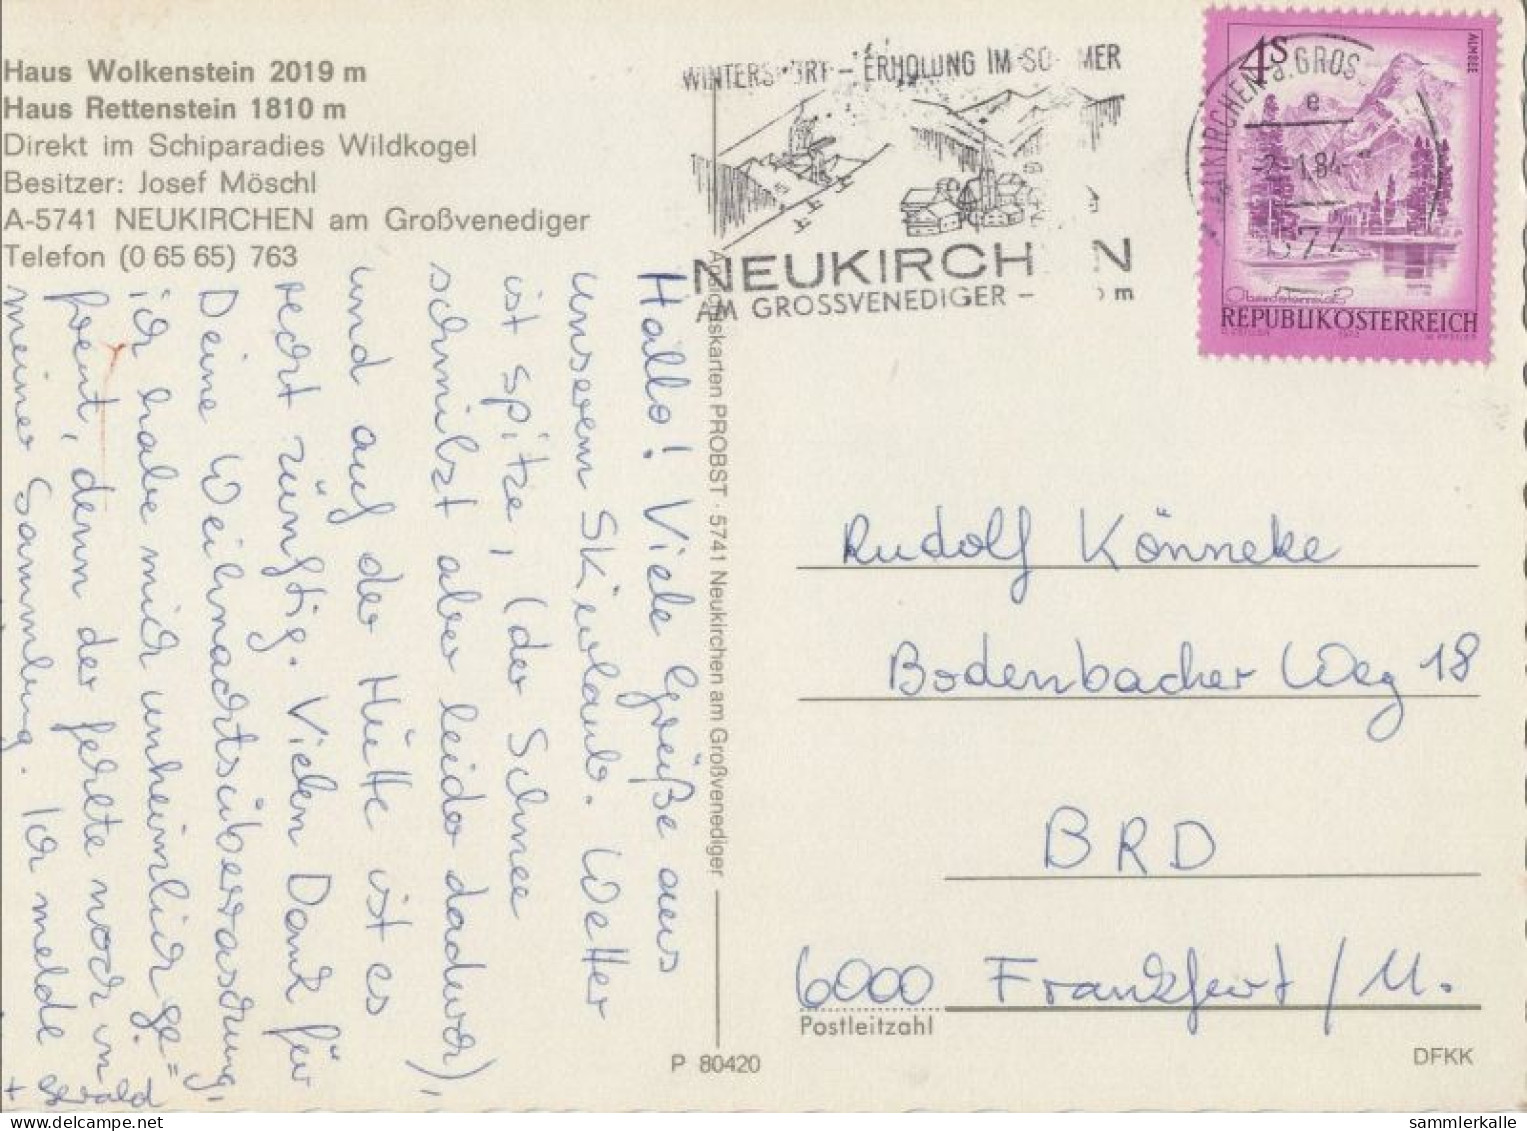 Haus Wolkenstein 2019 m
Haus Rettenstein 1810 m
Direkt im Schiparadies Wildkogel
Besitzer: Josef Möschl
A-5741 NEUKIRCHEN am Großvenediger
Telefon (0 65 65) 763
Hallo! Viele Grüße aus
unserem Skiurlaub. Wetter
ist spitze, (der Schnee
schmilzt aber leider dadurch),
und auf der Hütte ist es
recht zünftig. Vielen Dank für
Deine Weihnachtsüberraschung,
ich habe mich unheimlich ge=
freut, denn der fehlte noch in
meiner Sammlung. Ich melde
+ Gerald
Ansichtskarten PROBST · 5741 Neukirchen am Großvenediger
P 80420
WINTERSPORT – ERHOLUNG IM SOMMER
NEUKIRCH N
AM GROSSVENEDIGER –
m
NEUKIRCHEN a. GROS
e
-2-1.84-
577
4S
ALMSEE
Oberösterreich
REPUBLIK ÖSTERREICH
Rudolf Könneke
Bodenbacher Weg 18
BRD
6000 Frankfurt / M.
Postleitzahl
DFKK
delcampe.net
sammlerkalle